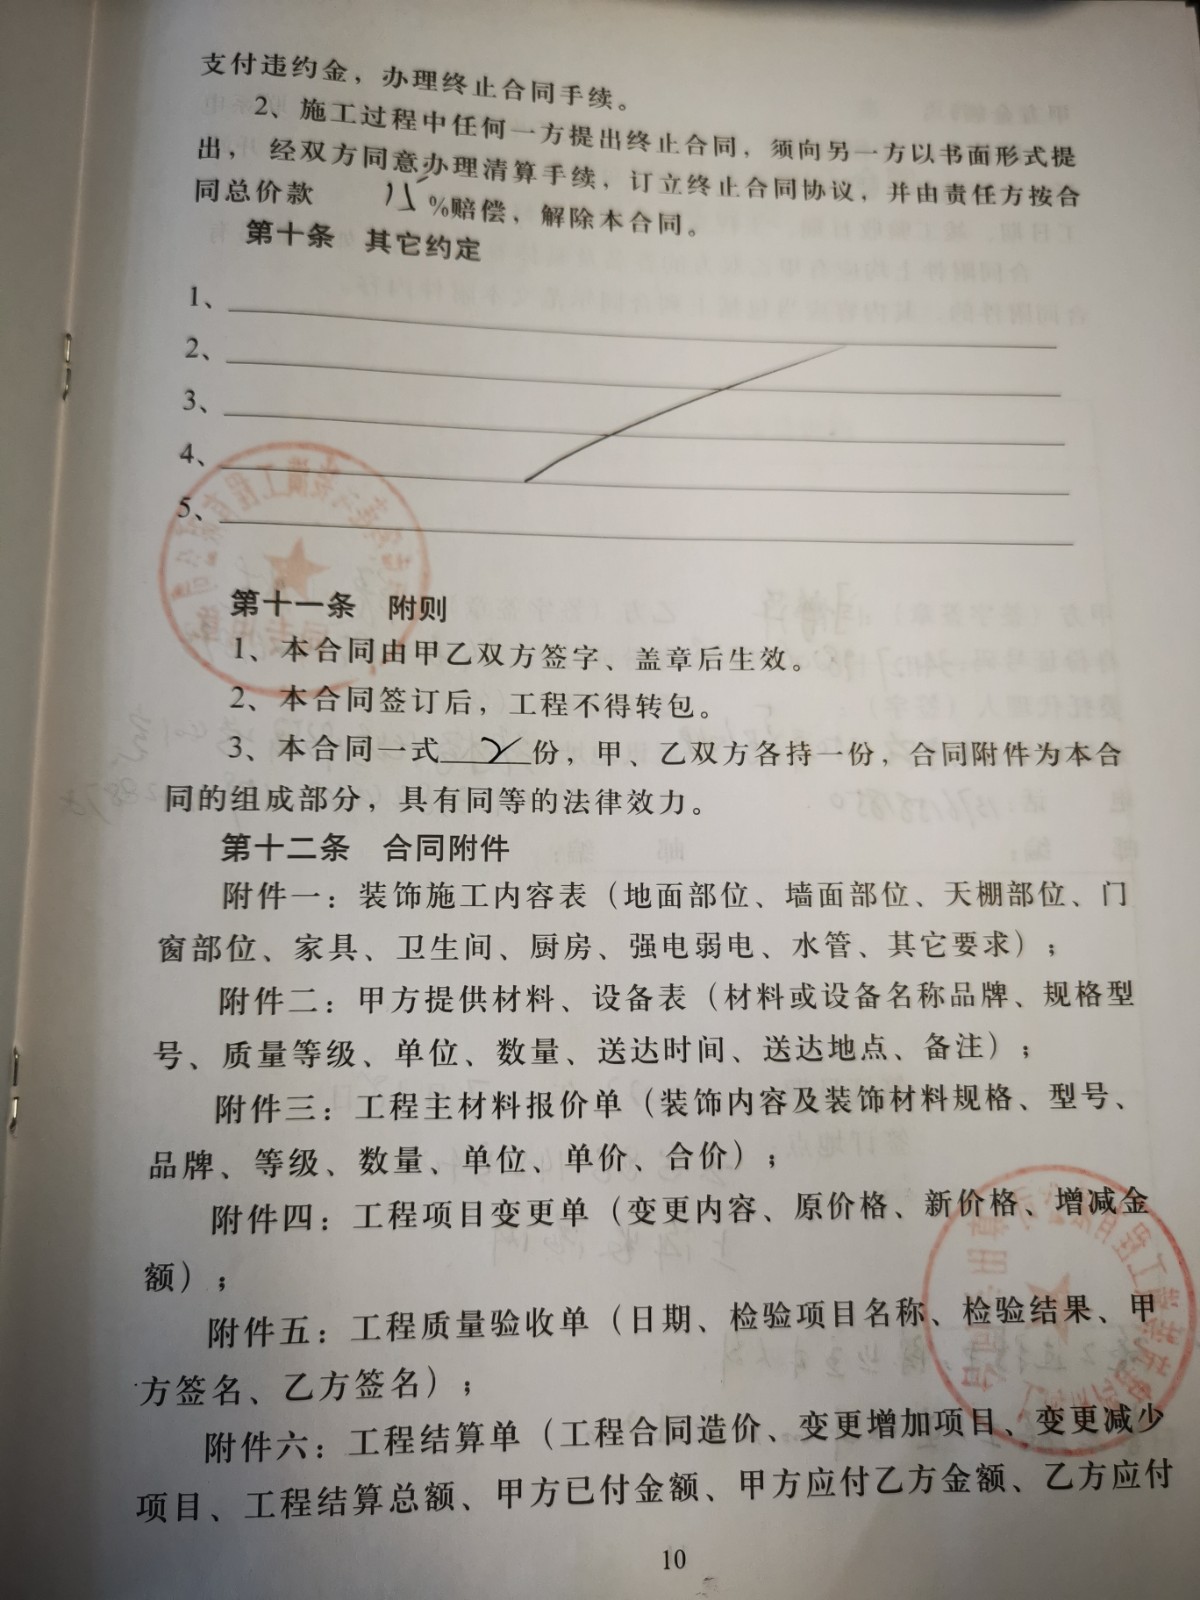 支付违约金，办理终止合同手续。
2、施工过程中任何一方提出终止合同，须向另一方以书面形式提
出， 经双方同意办理清算手续，订立终止合同协议，并由责任方按合
同总价款 15 %赔偿，解除本合同。
第十条 其它约定
1、
2、
3、
4、
5、
第十一条 附则
1、本合同由甲乙双方签字、盖章后生效。
2、本合同签订后，工程不得转包。
3、本合同一式 份，甲、乙双方各持一份，合同附件为本合
同的组成部分，具有同等的法律效力。
第十二条 合同附件
附件一：装饰施工内容表（地面部位、墙面部位、天棚部位、门
窗部位、家具、卫生间、厨房、强电弱电、水管、其它要求）；
附件二：甲方提供材料、设备表（材料或设备名称品牌、规格型
号、质量等级、单位、数量、送达时间、送达地点、备注）；
附件三：工程主材料报价单（装饰内容及装饰材料规格、型号、
品牌、等级、数量、单位、单价、合价）；
附件四：工程项目变更单（变更内容、原价格、新价格、增减金
额）；
附件五：工程质量验收单（日期、检验项目名称、检验结果、甲
方签名、乙方签名）；
附件六：工程结算单（工程合同造价、变更增加项目、变更减少
项目、工程结算总额、甲方已付金额、甲方应付乙方金额、乙方应付
10